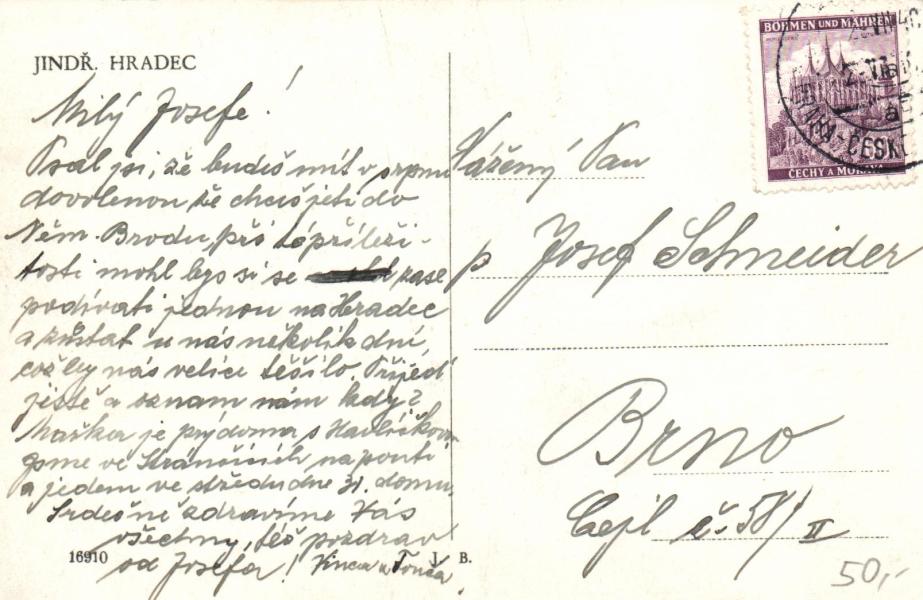 JINDŘ. HRADEC
Milý Josefe!
Psal jsi, že budeš mít v srpnu
dovolenou že chceš jeti do
Něm. Brodu, při té příleži-
tosti mohl bys si se zase
podívati jednou na Hradec
a zůstat u nás několik dní,
což by nás velice těšilo. Přijeď
jistě a oznam nám kdy?
Mařka je prý doma s Havlíčkovou
jsme ve Stránčicích na pouti
a jedem ve středu dne 31. domů.
Srdečně zdravíme Vás
všechny, též pozdrav
od Josefa! Vinca a Tonča
16910 T. J. B.
BÖHMEN UND MÄHREN
ČECHY A MORAVA
Vážený Pan
p Josef Schneider
Brno
Cejl č. 58/II
50,-